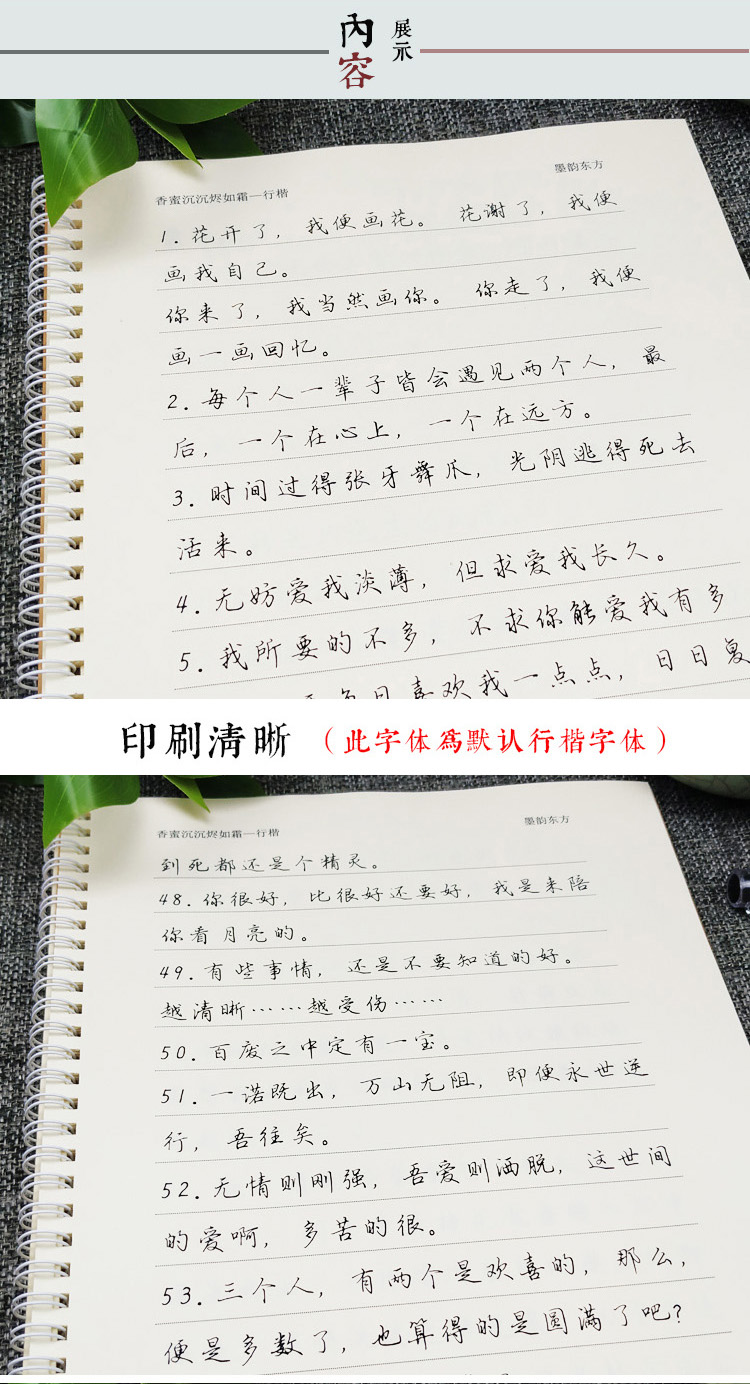 內容
展示
香蜜沉沉烬如霜—行楷
墨韵东方
1. 花开了，我便画花。 花谢了，我便
画我自己。
你来了，我当然画你。 你走了，我便
画一画回忆。
2. 每个人一辈子皆会遇见两个人，最
后，一个在心上，一个在远方。
3. 时间过得张牙舞爪，光阴逃得死去
活来。
4. 无妨爱我淡薄，但求爱我长久。
5. 我所要的不多，不求你能爱我有多
每日喜欢我一点点，日日复
印刷清晰（此字体為默认行楷字体）
香蜜沉沉烬如霜—行楷
墨韵东方
到死都还是个精灵。
48. 你很好，比很好还要好，我是来陪
你看月亮的。
49. 有些事情，还是不要知道的好。
越清晰……越受伤……
50. 百废之中定有一宝。
51. 一诺既出，万山无阻，即便永世逆
行，吾往矣。
52. 无情则刚强，吾爱则洒脱，这世间
的爱啊，多苦的很。
53. 三个人，有两个是欢喜的，那么，
便是多数了，也算得的是圆满了吧？